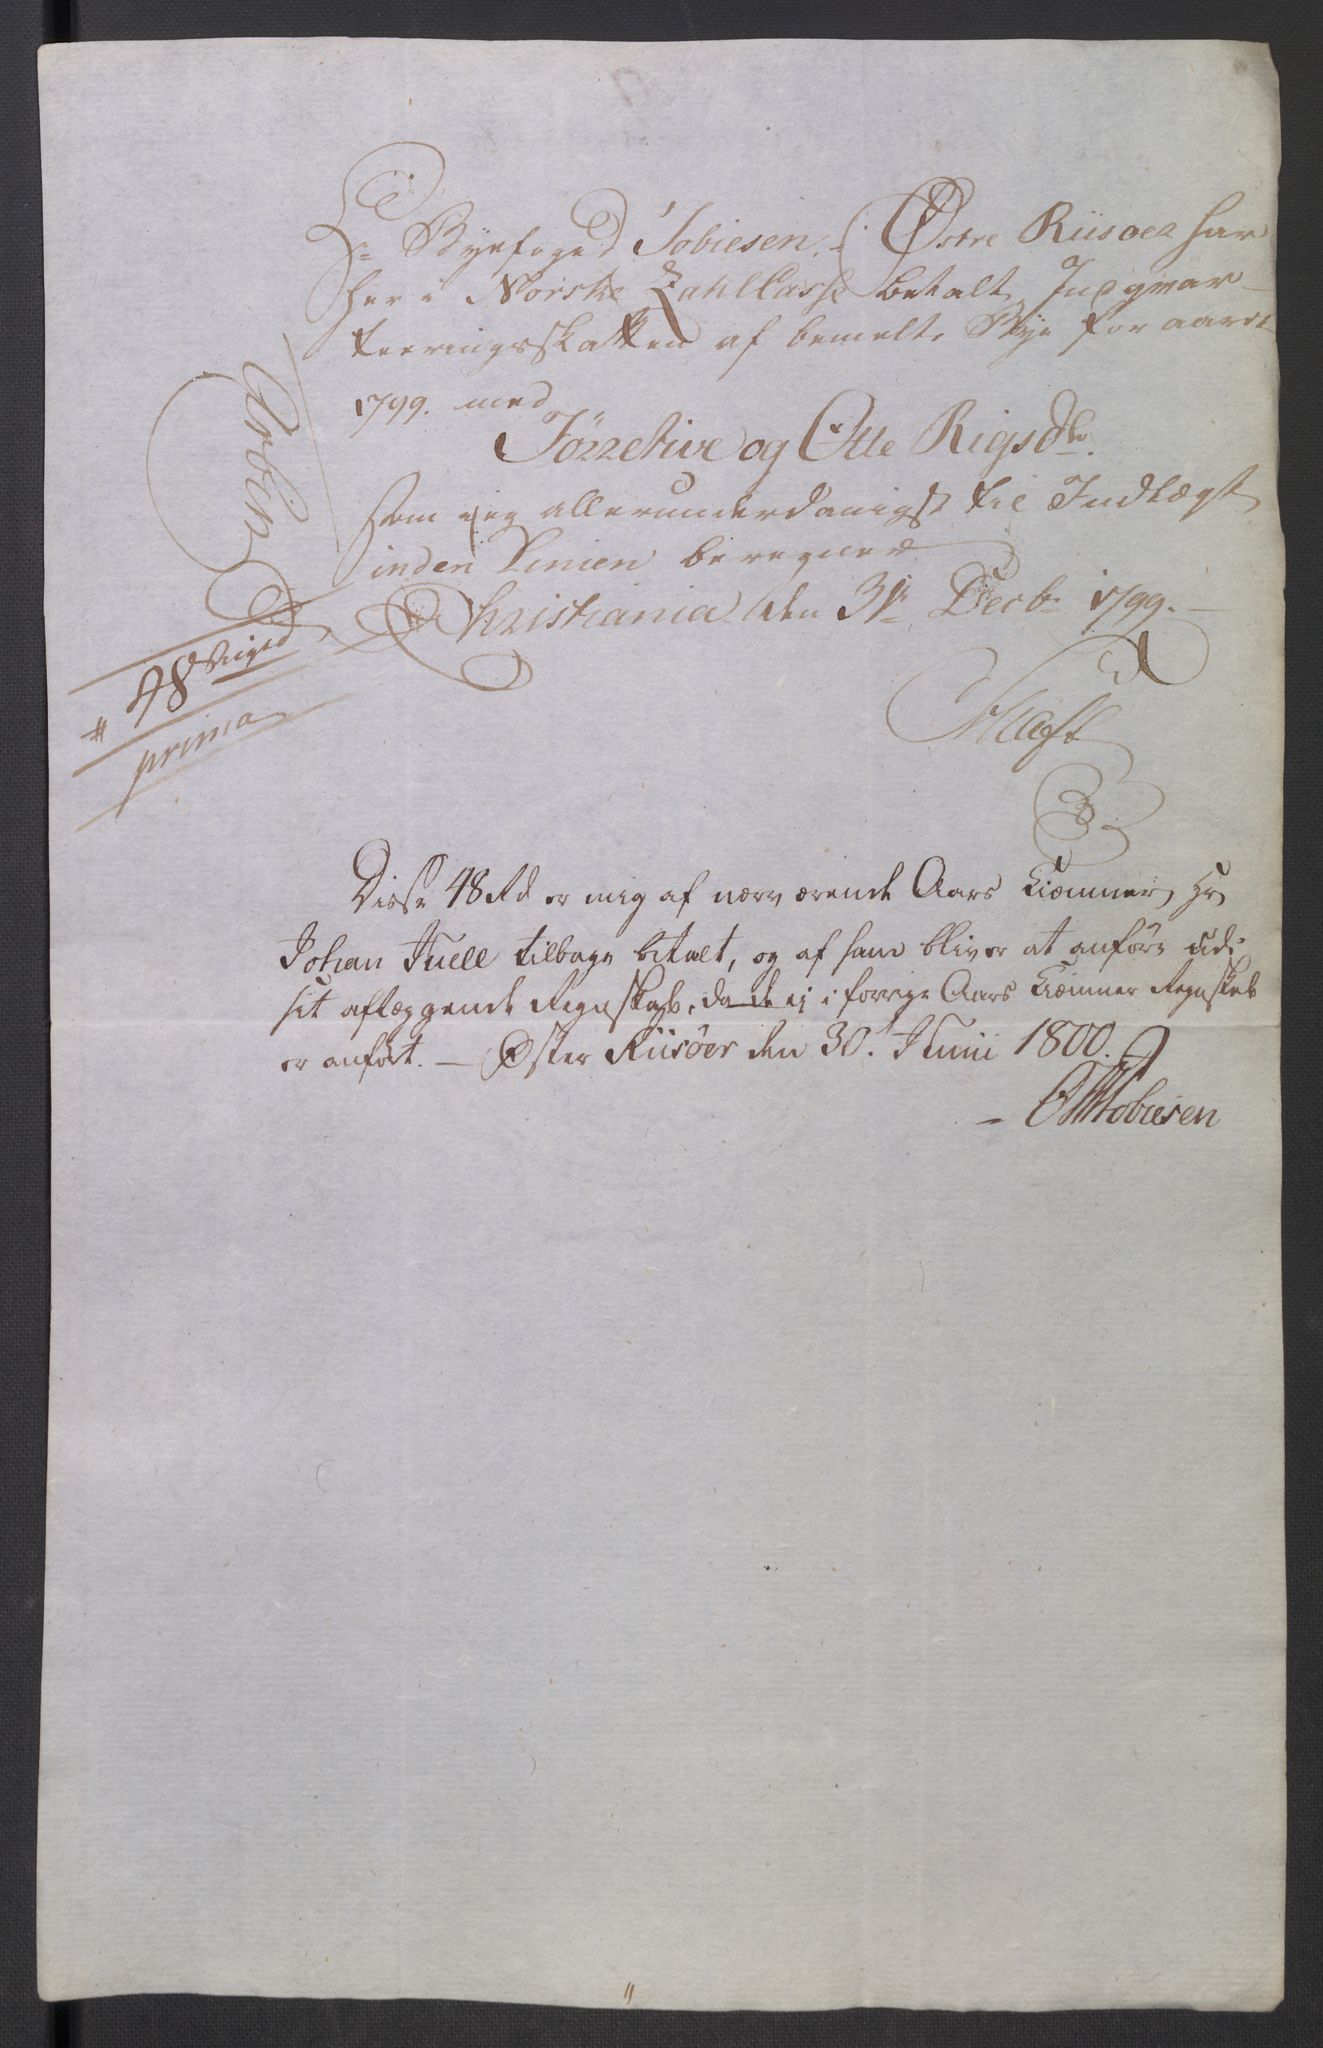 Hr Byefoged Tobiesen i Østre Riisøer har
her i Norske Zahlkasse betalt Indqvar-
teeringsskatten af bemelte Bye for aaret
1799. med
Førretive og Otte Rigsdlr.
som jeg allerunderdanigst til Indtægt
inden Linien beregner
Christiania den 31te Decbr 1799.
48 Rigsd
prima
Disse 48 Rd er mig af nærværende Aars Kiæmner Hr
Johan Juell tilbage betalt, og af ham bliver at anføre udi
sit aflæggende Regnskab, da de ej i forrige Aars Kiæmner Regnskab
er anført. — Øster Riisöer den 30. Junii 1800.
Tobiesen